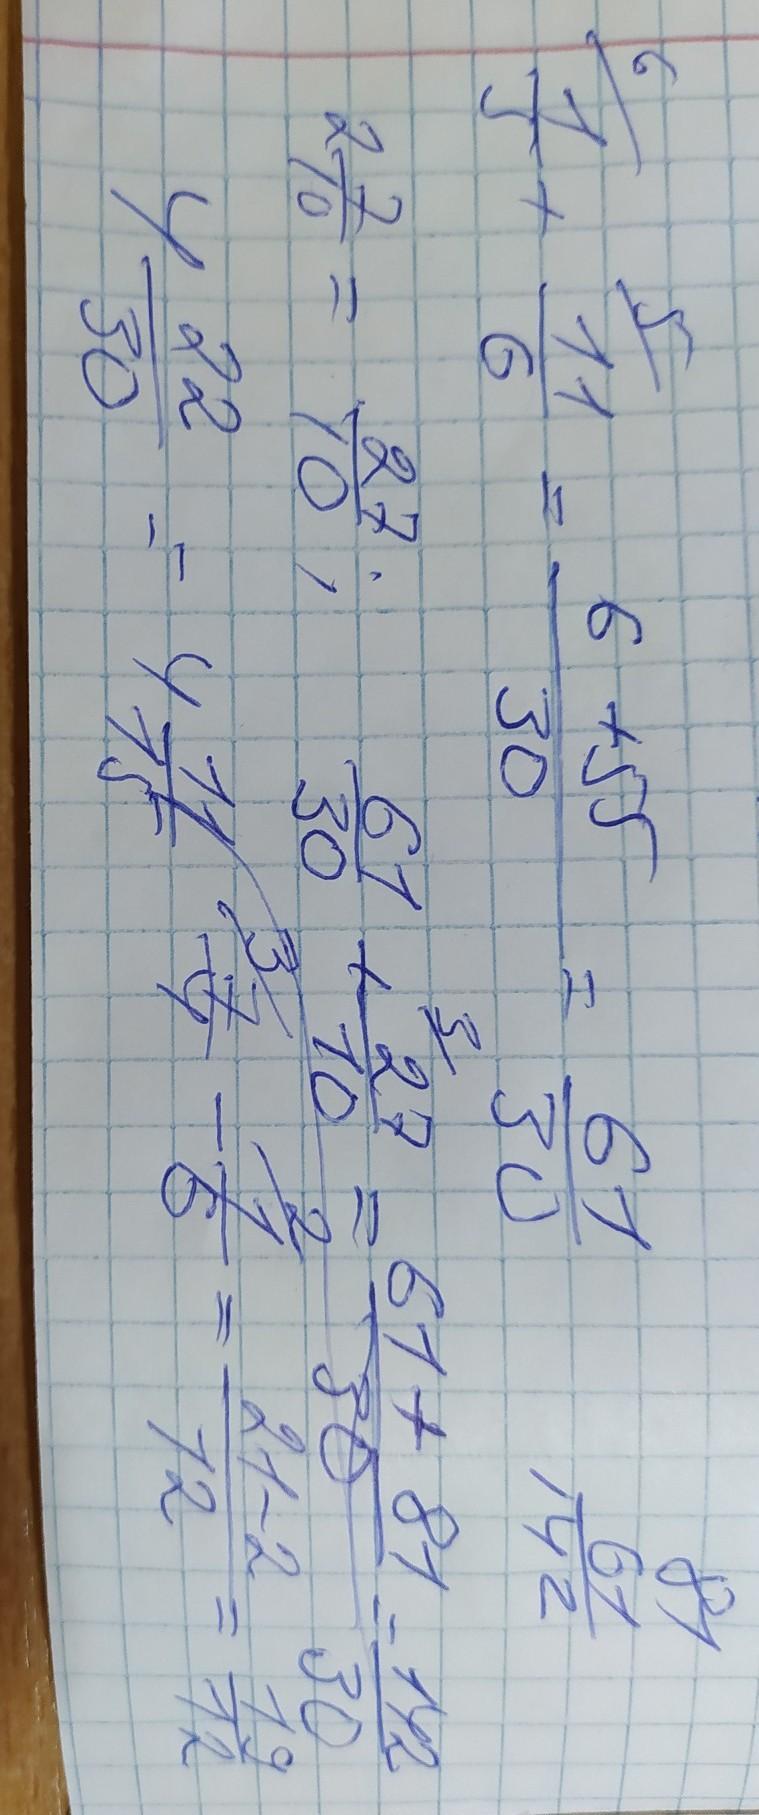 6/ 1/5 + 5/ 11/6 = (6 + 55)/30 = 61/30
81
61
142
2 7/10 = 27/10 ; 61/30 + 3/ 27/10 = (61 + 81)/30 = 142/30
4 22/30 = 4 11/15
3/ 7/4 - 2/ 1/6 = (21 - 2)/12 = 19/12